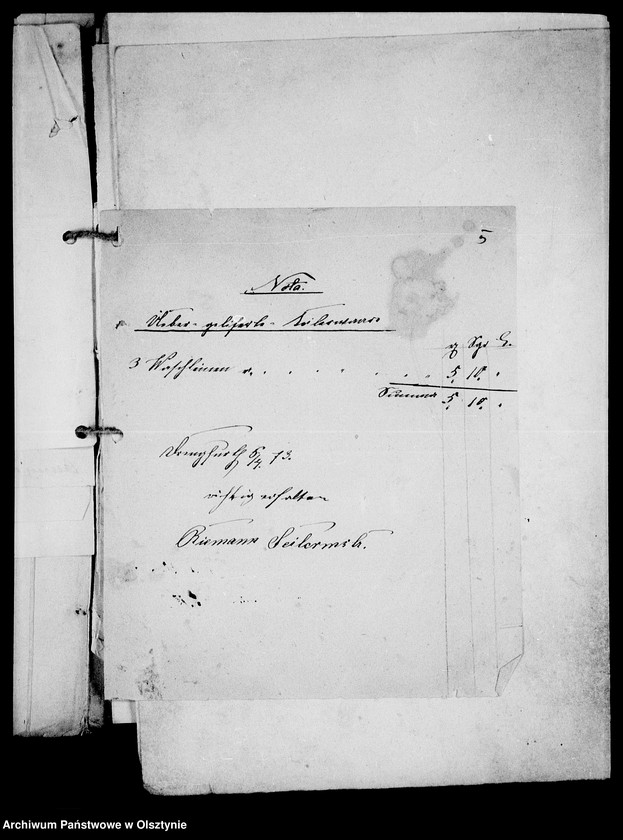 5
Nota.
Ueber gelieferte Seilerwaare
Sgr
3 Waschleinen 5. 10. "
Summa 5. 10. "
Drengfurth 5/4. 73.
richtig erhalten
Riemann Seilermstr.
Archiwum Państwowe w Olsztynie